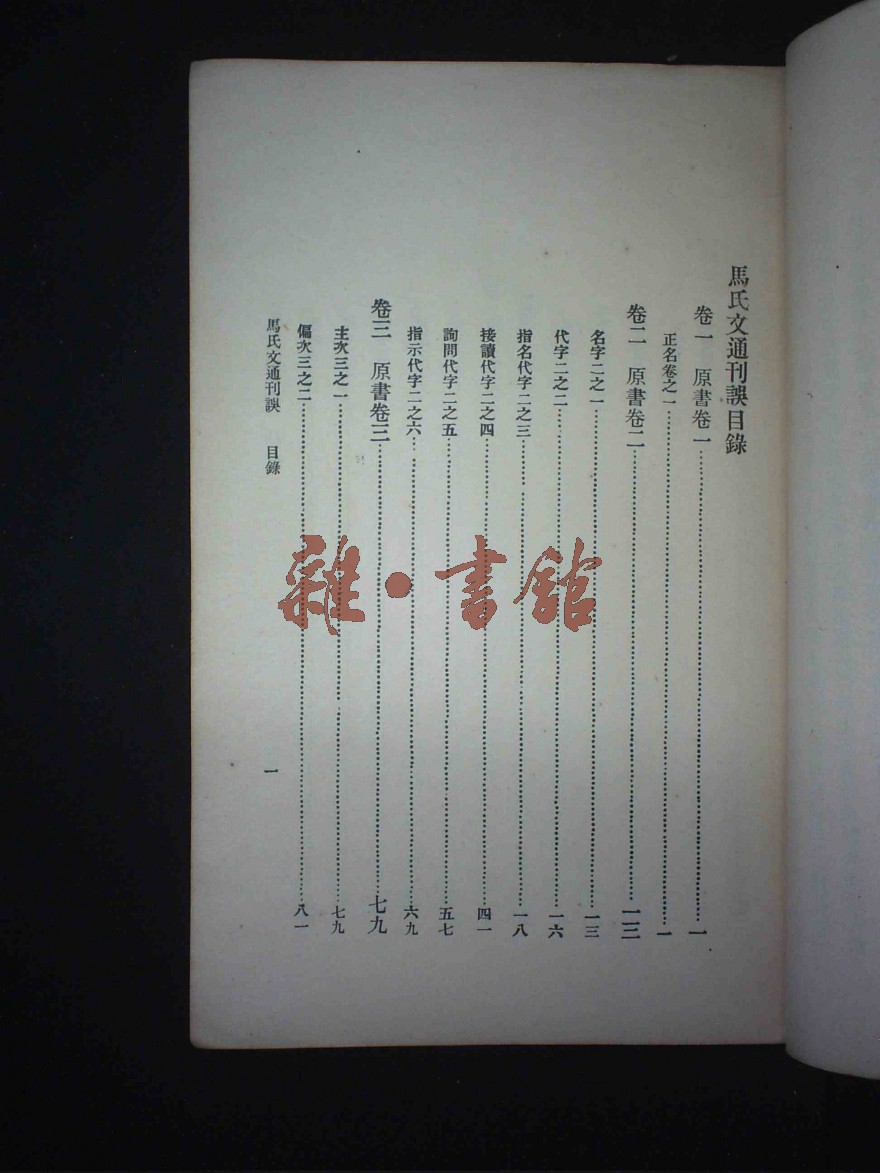 馬氏文通刊誤目錄
卷一　原書卷一……一
正名卷之一……一
卷二　原書卷二……一三
名字二之一……一三
代字二之二……一六
指名代字二之三……一八
接讀代字二之四……四一
詢問代字二之五……五七
指示代字二之六……六九
卷三　原書卷三……七九
主次三之一……七九
偏次三之二……八一
馬氏文通刊誤　目錄
一
雜·書館